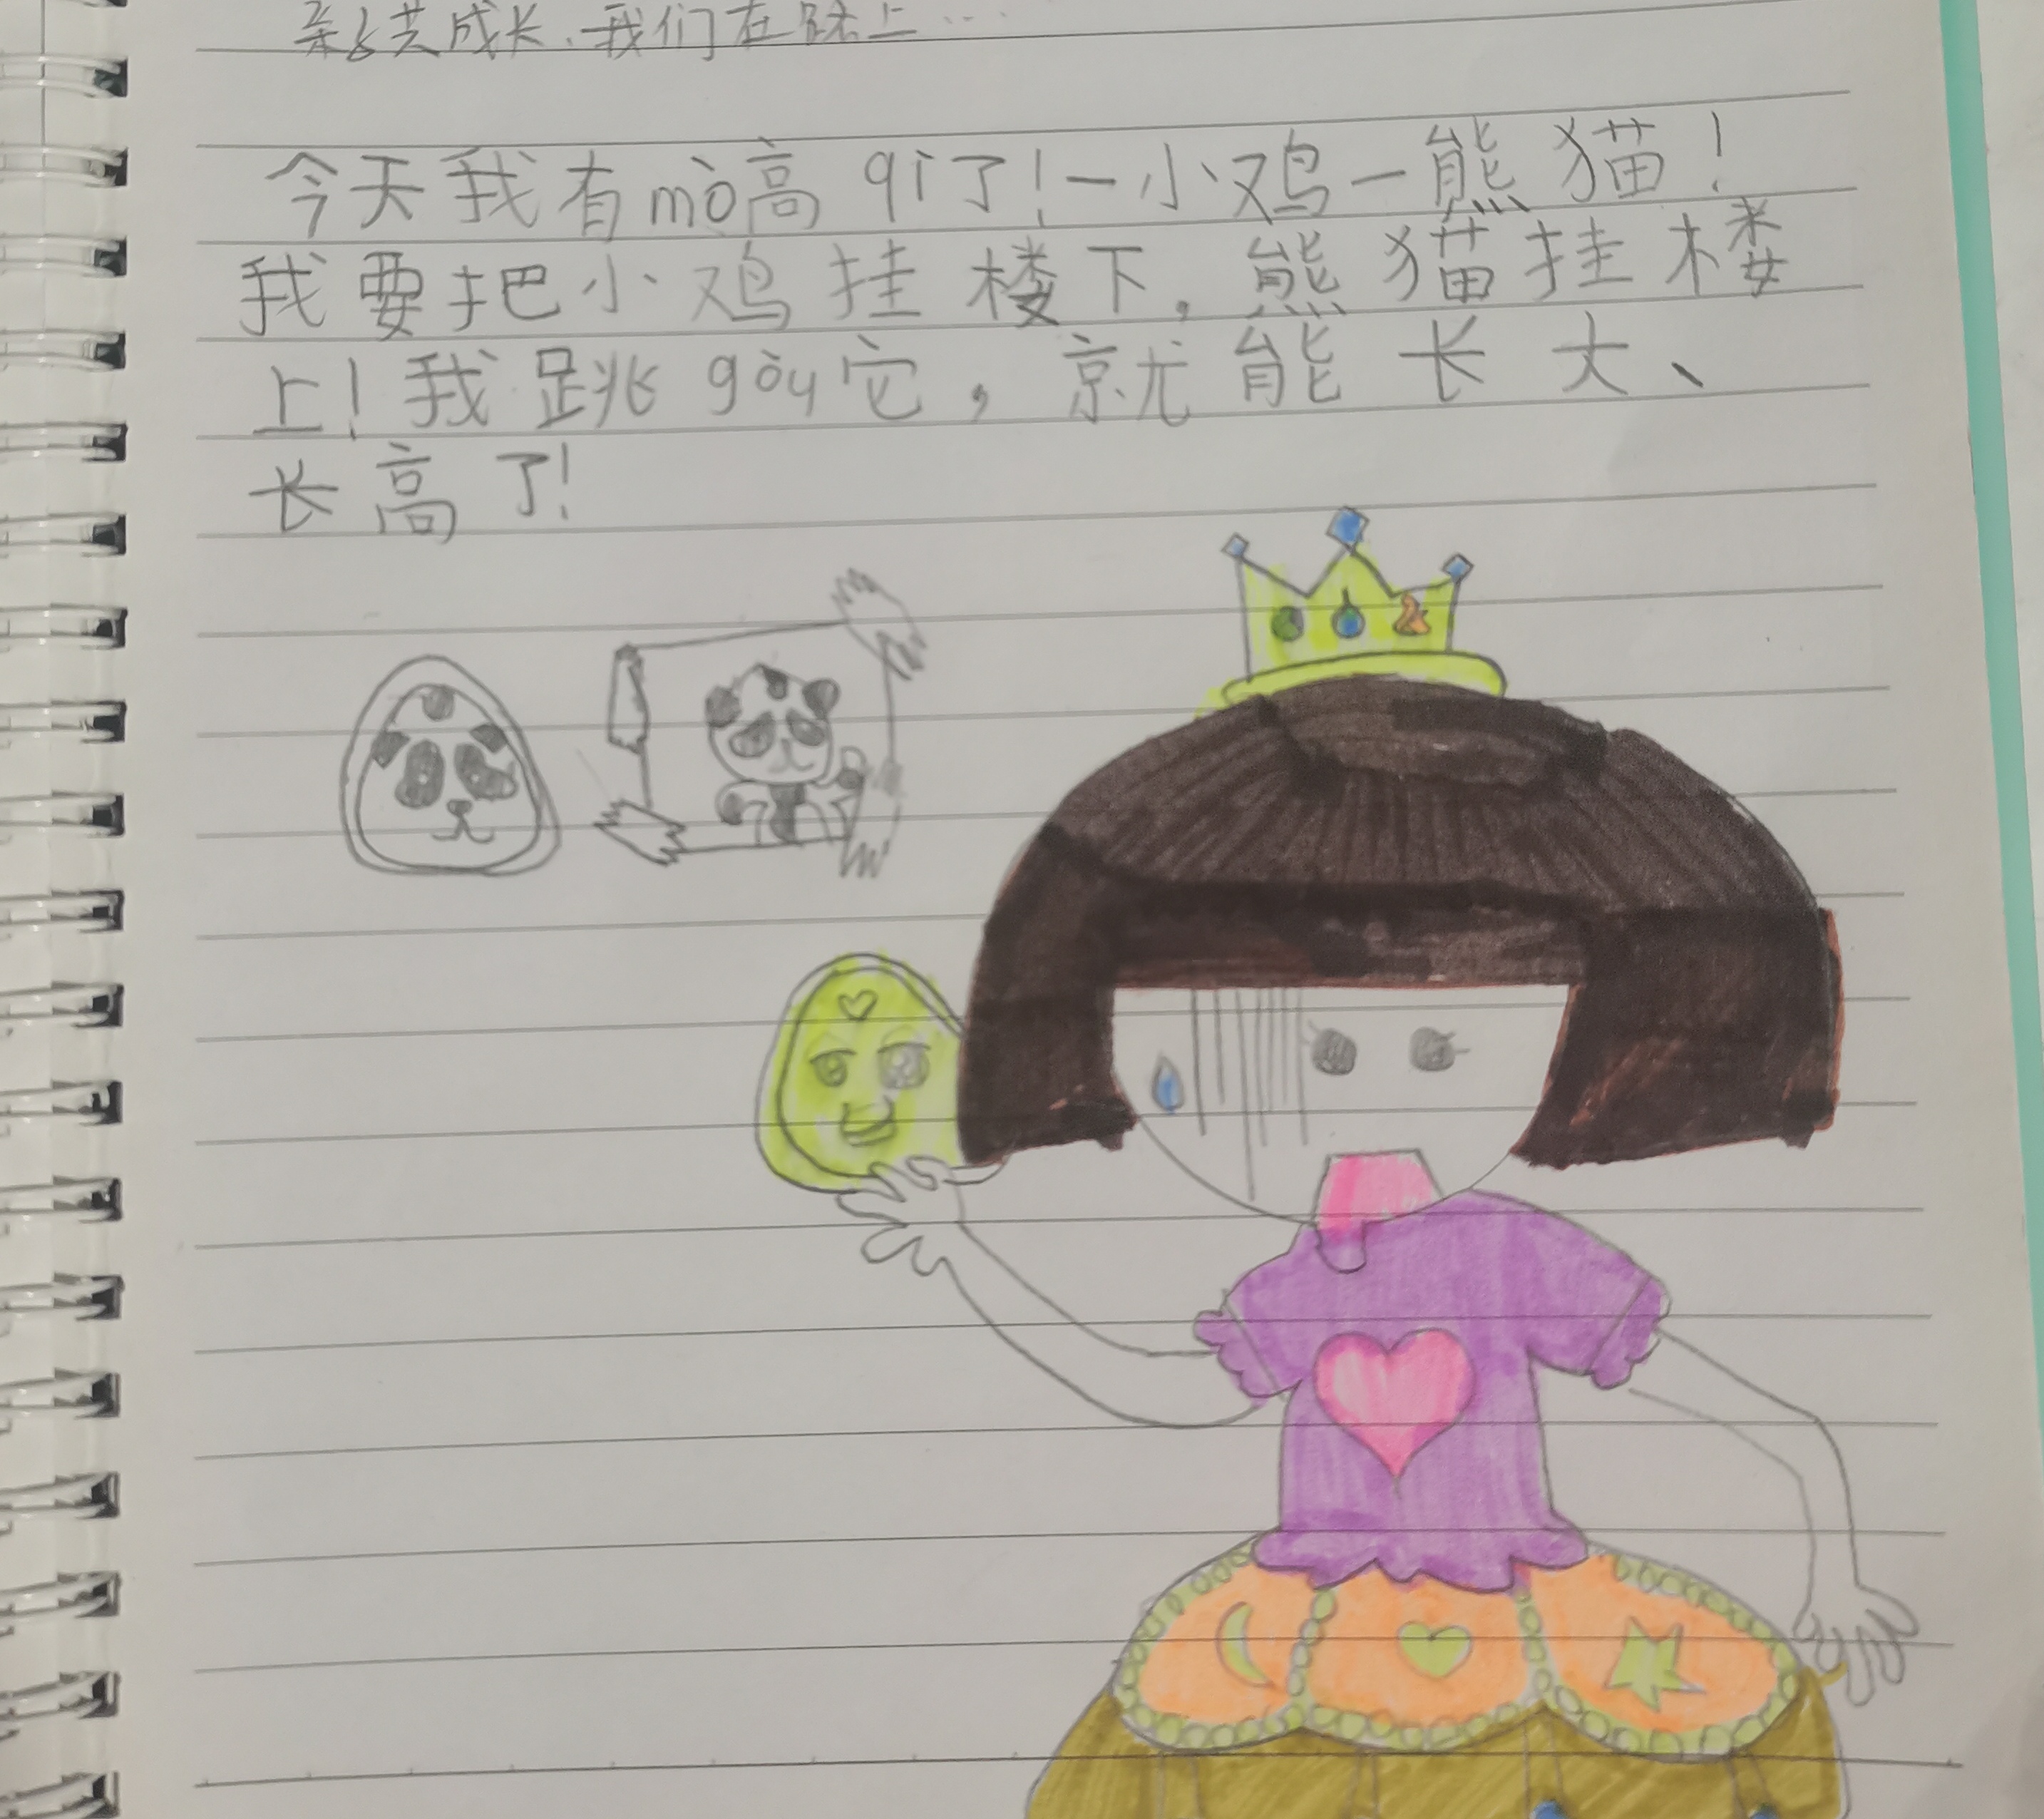 亲子共成长、我们在路上…
今天我有mò高 qì了！一小鸡一熊猫！
我要把小鸡挂楼下，熊猫挂楼
上！我跳gòu它，就能长大、
长高了！